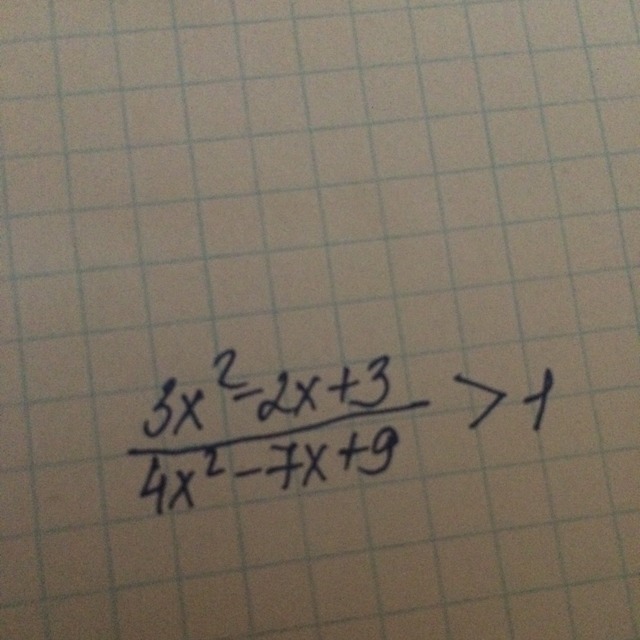 3x²-2x+3
4x²-7x+9 > 1